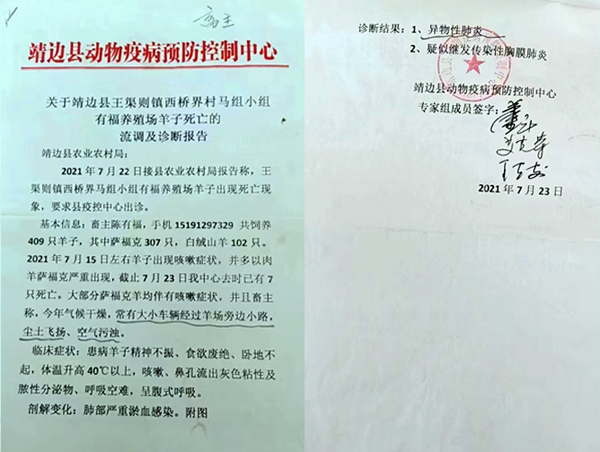 畜主
靖边县动物疫病预防控制中心
关于靖边县王渠则镇西桥界村马组小组
有福养殖场羊子死亡的
流调及诊断报告
靖边县农业农村局：
2021年7月22日接县农业农村局报告称，王
渠则镇西桥界马组小组有福养殖场羊子出现死亡现
象，要求县疫控中心出诊。
基本信息：畜主陈有福，手机15191297329 共饲养
409只羊子，其中萨福克307只，白绒山羊102只。
2021年7月15日左右羊子出现咳嗽症状，并多以肉
羊萨福克严重出现，截止7月23日我中心去时已有7
只死亡。大部分萨福克羊均伴有咳嗽症状，并且畜主
称，今年气候干燥，常有大小车辆经过羊场旁边小路，
尘土飞扬、空气污浊。
临床症状：患病羊子精神不振、食欲废绝、卧地不
起，体温升高40℃以上，咳嗽、鼻孔流出灰色粘性及
脓性分泌物、呼吸空难，呈腹式呼吸。
剖解变化：肺部严重淤血感染。附图
诊断结果：1、异物性肺炎
2、疑似继发传染性胸膜肺炎
靖边县动物疫病预防控制中心
专家组成员签字：
2021年7月23日